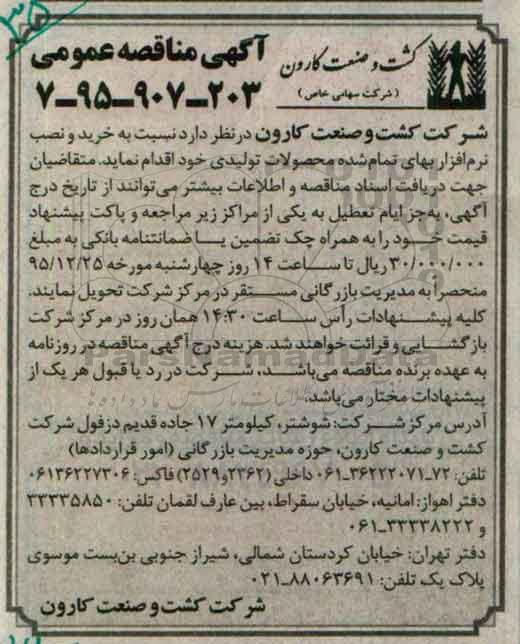 ۳۵
آگهی مناقصه عمومی
۲۰۳-۹۰۷-۹۵-۷
کشت و صنعت کارون
(شرکت سهامی خاص)
شرکت کشت و صنعت کارون در نظر دارد نسبت به خرید و نصب
نرم‌افزار بهای تمام‌شده محصولات تولیدی خود اقدام نماید. متقاضیان
جهت دریافت اسناد مناقصه و اطلاعات بیشتر می‌توانند از تاریخ درج
آگهی، به‌جز ایام تعطیل به یکی از مراکز زیر مراجعه و پاکت پیشنهاد
قیمت خود را به همراه چک تضمین یا ضمانتنامه بانکی به مبلغ
۳۰/۰۰۰/۰۰۰ ریال تا ساعت ۱۴ روز چهارشنبه مورخه ۹۵/۱۲/۲۵
منحصراً به مدیریت بازرگانی مستقر در مرکز شرکت تحویل نمایند.
کلیه پیشنهادات رأس ساعت ۱۴:۳۰ همان روز در مرکز شرکت
بازگشایی و قرائت خواهند شد. هزینه درج آگهی مناقصه در روزنامه
به عهده برنده مناقصه می‌باشد، شرکت در رد یا قبول هر یک از
پیشنهادات مختار می‌باشد.
آدرس مرکز شرکت: شوشتر، کیلومتر ۱۷ جاده قدیم دزفول شرکت
کشت و صنعت کارون، حوزه مدیریت بازرگانی (امور قراردادها)
تلفن: ۷۲-۳۶۲۲۲۰۷۱-۰۶۱ داخلی (۲۳۶۲و۲۵۲۹) فاکس: ۰۶۱۳۶۲۲۷۳۰۶
دفتر اهواز: امانیه، خیابان سقراط، بین عارف لقمان تلفن: ۳۳۳۳۵۸۵۰
و ۳۳۳۳۸۲۲۲-۰۶۱
دفتر تهران: خیابان کردستان شمالی، شیراز جنوبی بن‌بست موسوی
پلاک یک تلفن: ۸۸۰۶۳۶۹۱-۰۲۱
شرکت کشت و صنعت کارون
ParsNamadData